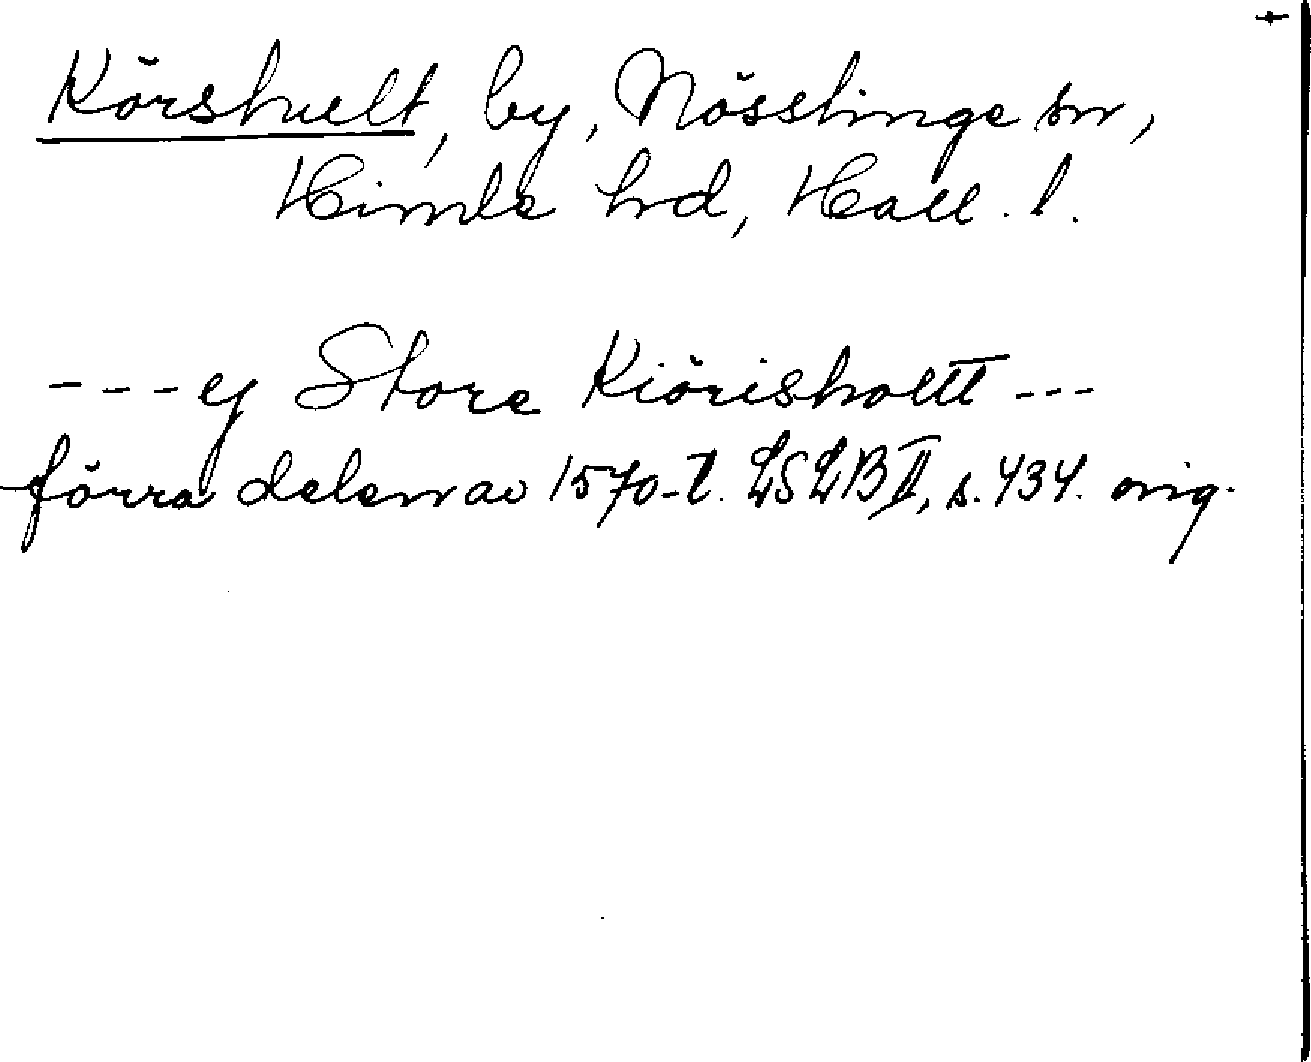 Körshult, by, Nösslinge sn,
Himle hrd, Hall. l.
- - - ej Store Kiörisholtt - - -
förra delen av 1570-t. LSLB II, s. 434. orig.